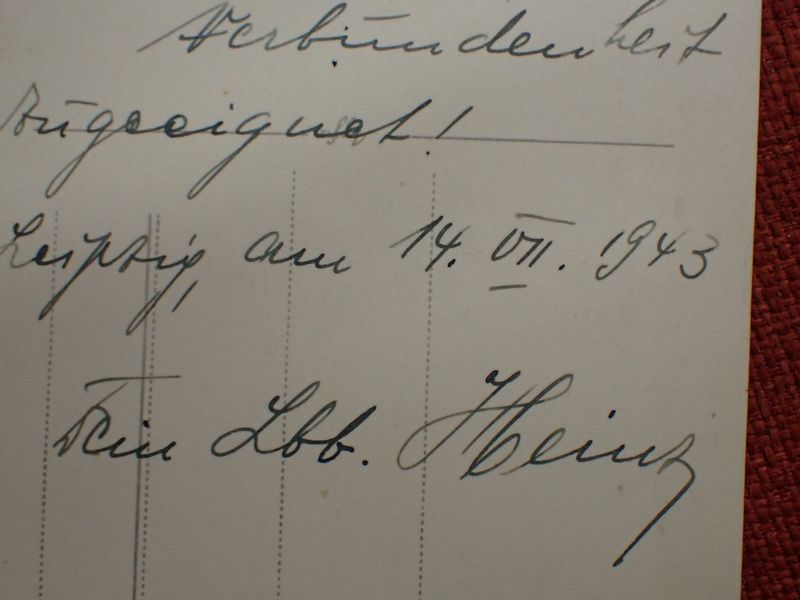 Verbundenheit
Zugeeignet!
Leipzig, am 14. VII. 1943
Dein Lbb. Heinz